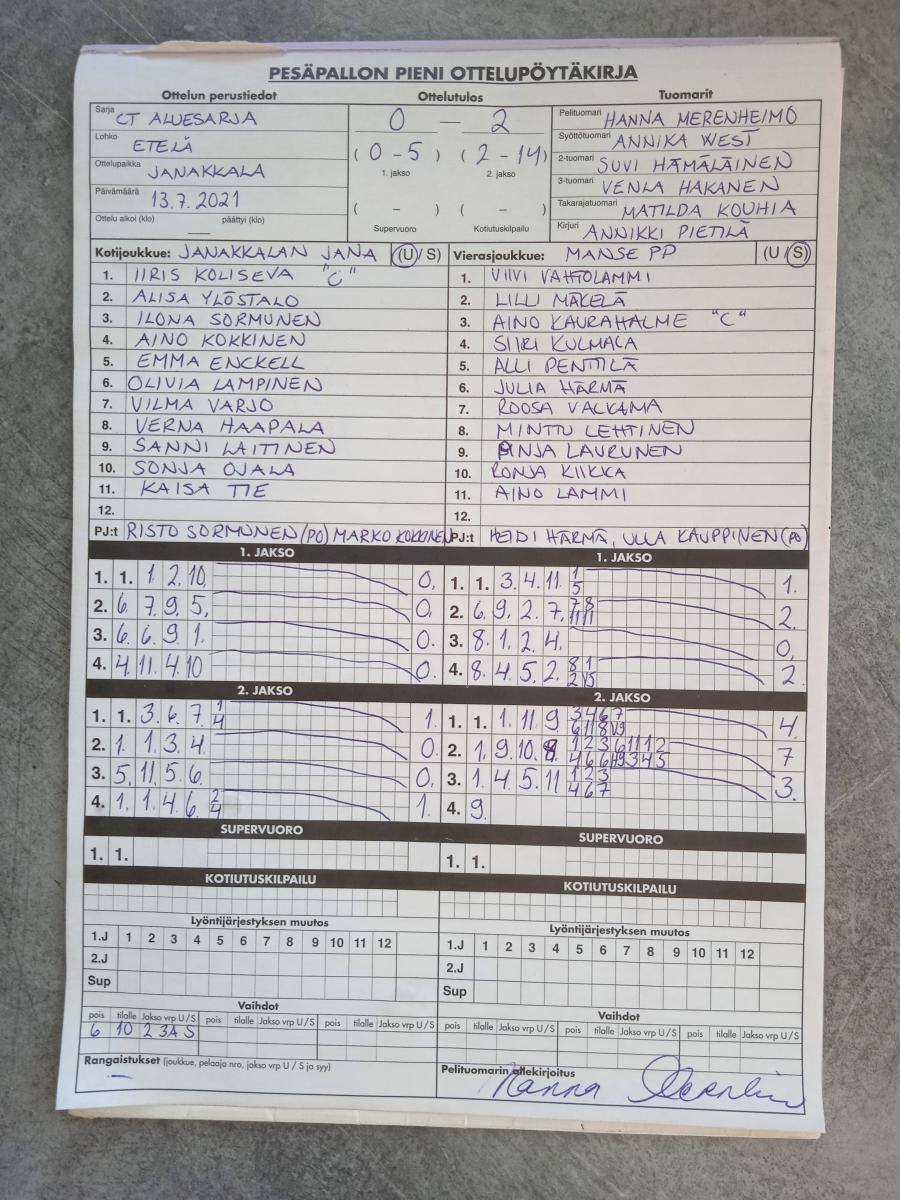 PESÄPALLON PIENI OTTELUPÖYTÄKIRJA
Ottelun perustiedot
Sarja CT ALUESARJA
Lohko ETELÄ
Ottelupaikka JANAKKALA
Päivämäärä 13.7.2021
Ottelu alkoi (klo) — päättyi (klo)
Ottelutulos
0 — 2
(0-5) (2-14)
1. jakso 2. jakso
( - ) ( - )
Supervuoro Kotiutuskilpailu
Tuomarit
Pelituomari HANNA MERENHEIMO
Syöttötuomari ANNIKA WEST
2-tuomari SUVI HÄMÄLÄINEN
3-tuomari VENLA HAKANEN
Takarajatuomari MATILDA KOUHIA
Kirjuri ANNIKKI PIETILÄ
Kotijoukkue: JANAKKALAN JANA (U/S)
1. IIRIS KOLISEVA "C"
2. ALISA YLÖSTALO
3. ILONA SORMUNEN
4. AINO KOKKINEN
5. EMMA ENCKELL
6. OLIVIA LAMPINEN
7. VILMA VARJO
8. VERNA HAAPALA
9. SANNI LAITINEN
10. SONJA OJALA
11. KAISA TIE
12.
PJ:t RISTO SORMUNEN (PO) MARKO KOKKINEN
Vierasjoukkue: MANSE PP (U/S)
1. VIIVI VAHTOLAMMI
2. LILLI MÄKELÄ
3. AINO KAURAHALME "C"
4. SIIRI KULMALA
5. ALLI PENTTILÄ
6. JULIA HÄRMÄ
7. ROOSA VALKAMA
8. MINTTU LEHTINEN
9. PINJA LAURUNEN
10. RONJA KIIKKA
11. AINO LAMMI
12.
PJ:t HEIDI HÄRMÄ, ULLA KAUPPINEN (PO)
1. JAKSO
1. 1. 1. 2. 10. 0.
2. 6. 7. 9. 5. 0.
3. 6. 6. 9. 1. 0.
4. 4. 11. 4. 10 0.
1. JAKSO
1. 1. 3. 4. 11. 1 5 1.
2. 6. 9. 2. 7. 7 8 11 11 2.
3. 8. 1. 2. 4. 0.
4. 8. 4. 5. 2. 8 1 2 2.
2. JAKSO
1. 1. 3. 6. 7. 1 4 1.
2. 1. 1. 3. 4. 0.
3. 5. 11. 5. 6. 0.
4. 1. 1. 4. 6. 2 4 1.
2. JAKSO
1. 1. 1. 11. 9 3 4 6 7 6 11 8 4.
2. 1. 9. 10. 8. 1 2 3 6 11 1 2 4 6 6 3 4 5 7
3. 1. 4. 5. 11 1 2 3 4 6 7 3.
4. 9.
SUPERVUORO
1. 1.
SUPERVUORO
1. 1.
KOTIUTUSKILPAILU
KOTIUTUSKILPAILU
Lyöntijärjestyksen muutos
1.J 1 2 3 4 5 6 7 8 9 10 11 12
2.J
Sup
Lyöntijärjestyksen muutos
1.J 1 2 3 4 5 6 7 8 9 10 11 12
2.J
Sup
Vaihdot
pois tilalle Jakso vrp U/S pois tilalle Jakso vrp U/S pois tilalle Jakso vrp U/S
6 10 2 3A S
Vaihdot
pois tilalle Jakso vrp U/S pois tilalle Jakso vrp U/S pois tilalle Jakso vrp U/S
Rangaistukset (joukkue, pelaaja nro, jakso vrp U / S ja syy)
—
Pelituomarin allekirjoitus
Hanna